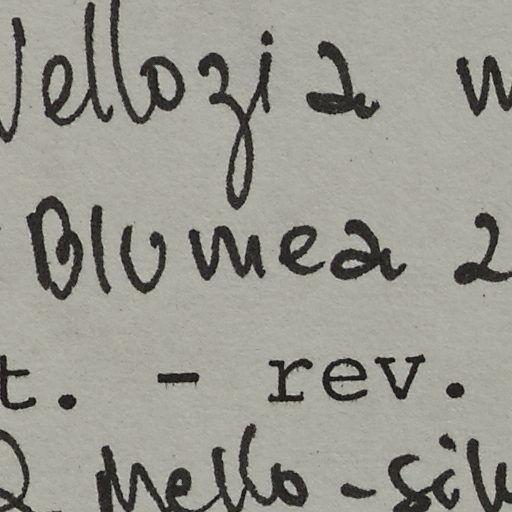 Vellozia
Blumea 2
t. - rev.
Mello-Silv